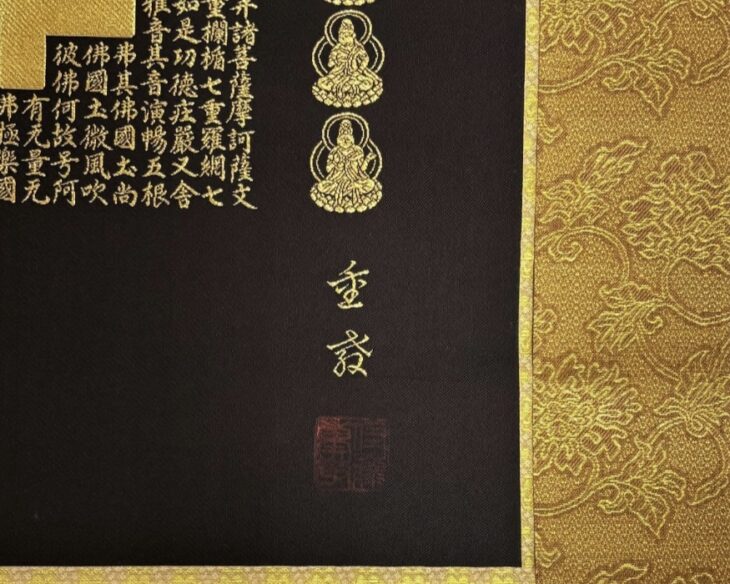 并諸菩薩摩訶薩文
重欄楯七重羅網七
如是功德莊嚴又舍
雅音其音演暢五根
弗其佛國土尚
佛國土微風吹
彼佛何故号阿
有无量无
弗極樂國
重